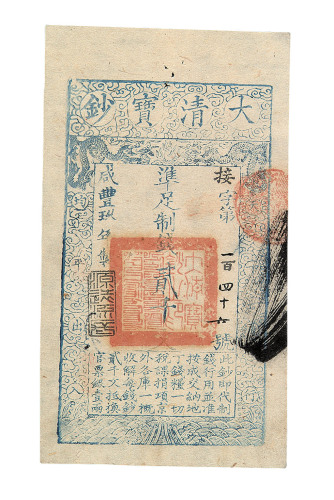 大清寶鈔
接字第一百四十 號
準足制錢貳千
咸豐玖年製
此鈔即代制
錢行用並准
按成交納地
丁錢糧一切
稅課捐項京
外各庫一概
收解每錢鈔
貳千文抵換
官票銀壹兩